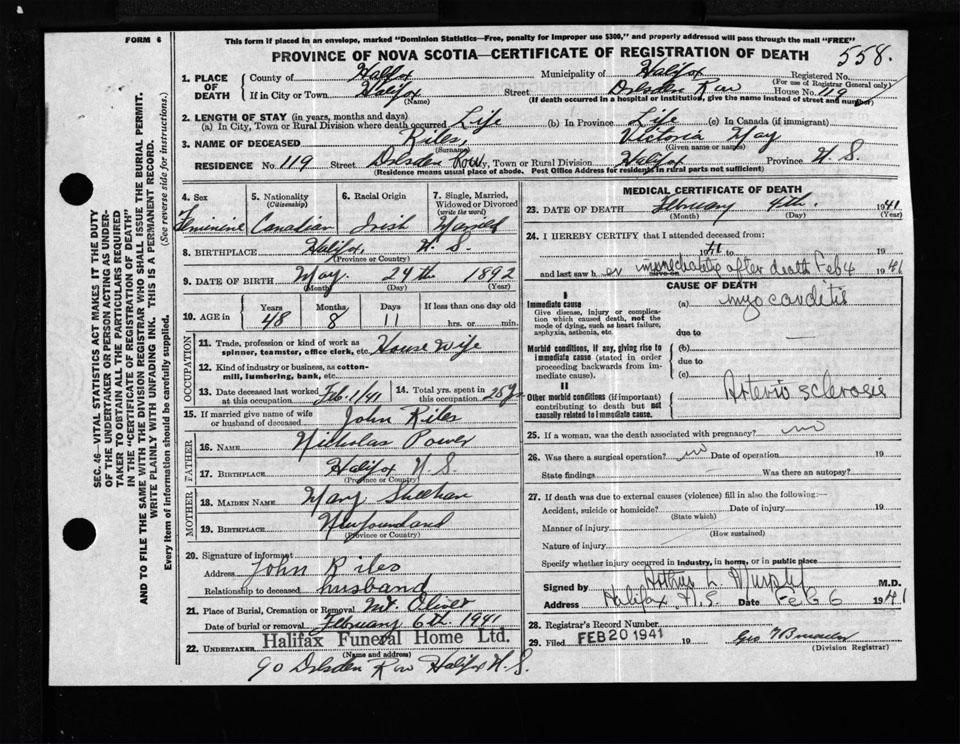 FORM 6
This form if placed in an envelope, marked "Dominion Statistics—Free, penalty for improper use $300," and properly addressed will pass through the mail "FREE"
PROVINCE OF NOVA SCOTIA—CERTIFICATE OF REGISTRATION OF DEATH
558.
1. PLACE OF DEATH County of Halifax Municipality of Halifax Registered No.
(For use of Registrar General only)
If in City or Town Halifax Street Dresden Row House No. 119
(Name) (If death occurred in a hospital or institution, give the name instead of street and number)
2. LENGTH OF STAY (in years, months and days)
(a) In City, Town or Rural Division where death occurred Life (b) In Province Life (c) In Canada (if immigrant)
3. NAME OF DECEASED Kiles, Victoria May
(Surname) (Given name or names)
RESIDENCE No. 119 Street Dresden Row City, Town or Rural Division Halifax Province N. S.
(Residence means usual place of abode. Post Office Address for residents in rural parts not sufficient)
SEC. 46—VITAL STATISTICS ACT MAKES IT THE DUTY
OF THE UNDERTAKER OR PERSON ACTING AS UNDER-
TAKER TO OBTAIN ALL THE PARTICULARS REQUIRED
IN THE "CERTIFICATE OF REGISTRATION OF DEATH"
AND TO FILE THE SAME WITH THE DIVISION REGISTRAR WHO SHALL ISSUE THE BURIAL PERMIT.
WRITE PLAINLY WITH UNFADING INK. THIS IS A PERMANENT RECORD.
Every item of information should be carefully supplied. (See reverse side for instructions.)
4. Sex 5. Nationality (Citizenship) 6. Racial Origin 7. Single, Married, Widowed or Divorced (write the word)
Feminine Canadian Irish Married
8. BIRTHPLACE Halifax, N. S.
(Province or Country)
9. DATE OF BIRTH May 24th 1892
(Month) (Day) (Year)
10. AGE in Years Months Days If less than one day old
48 8 11 hrs. or min.
OCCUPATION
11. Trade, profession or kind of work as spinner, teamster, office clerk, etc. House Wife
12. Kind of industry or business, as cotton-mill, lumbering, bank, etc.
13. Date deceased last worked at this occupation Feb. 1/41 14. Total yrs. spent in this occupation 25 yrs
15. If married give name of wife or husband of deceased John Kiles
FATHER
16. NAME Nicholas Power
17. BIRTHPLACE Halifax N. S.
(Province or Country)
MOTHER
18. MAIDEN NAME Mary Sheehan
19. BIRTHPLACE Newfoundland
(Province or Country)
20. Signature of informant John Kiles
Address
Relationship to deceased husband
21. Place of Burial, Cremation or Removal Mt. Olivet
Date of burial or removal February 6th. 1941
22. UNDERTAKER Halifax Funeral Home Ltd.
(Name and address)
90 Dresden Row Halifax N. S.
MEDICAL CERTIFICATE OF DEATH
23. DATE OF DEATH February 4th. 1941
(Month) (Day) (Year)
24. I HEREBY CERTIFY that I attended deceased from:
19 41 to 19
and last saw h er immediately after death Feb 4 1941
CAUSE OF DEATH
I
Immediate cause (a) myocarditis
Give disease, injury or complication which caused death, not the mode of dying, such as heart failure, asphyxia, asthenia, etc.
due to
Morbid conditions, if any, giving rise to immediate cause (stated in order proceeding backwards from immediate cause).
(b)
due to
(c)
II
Other morbid conditions (if important) contributing to death but not causally related to immediate cause.
Arterio sclerosis
25. If a woman, was the death associated with pregnancy? no
26. Was there a surgical operation? no Date of operation 19
State findings Was there an autopsy?
27. If death was due to external causes (violence) fill in also the following:—
Accident, suicide or homicide? Date of injury 19
(State which)
Manner of injury
(How sustained)
Nature of injury
Specify whether injury occurred in industry, in home, or in public place
Signed by Arthur L Murphy M.D.
Address Halifax, N.S. Date Feb 6 1941
28. Registrar's Record Number
29. Filed FEB 20 1941 19 Geo
(Division Registrar)